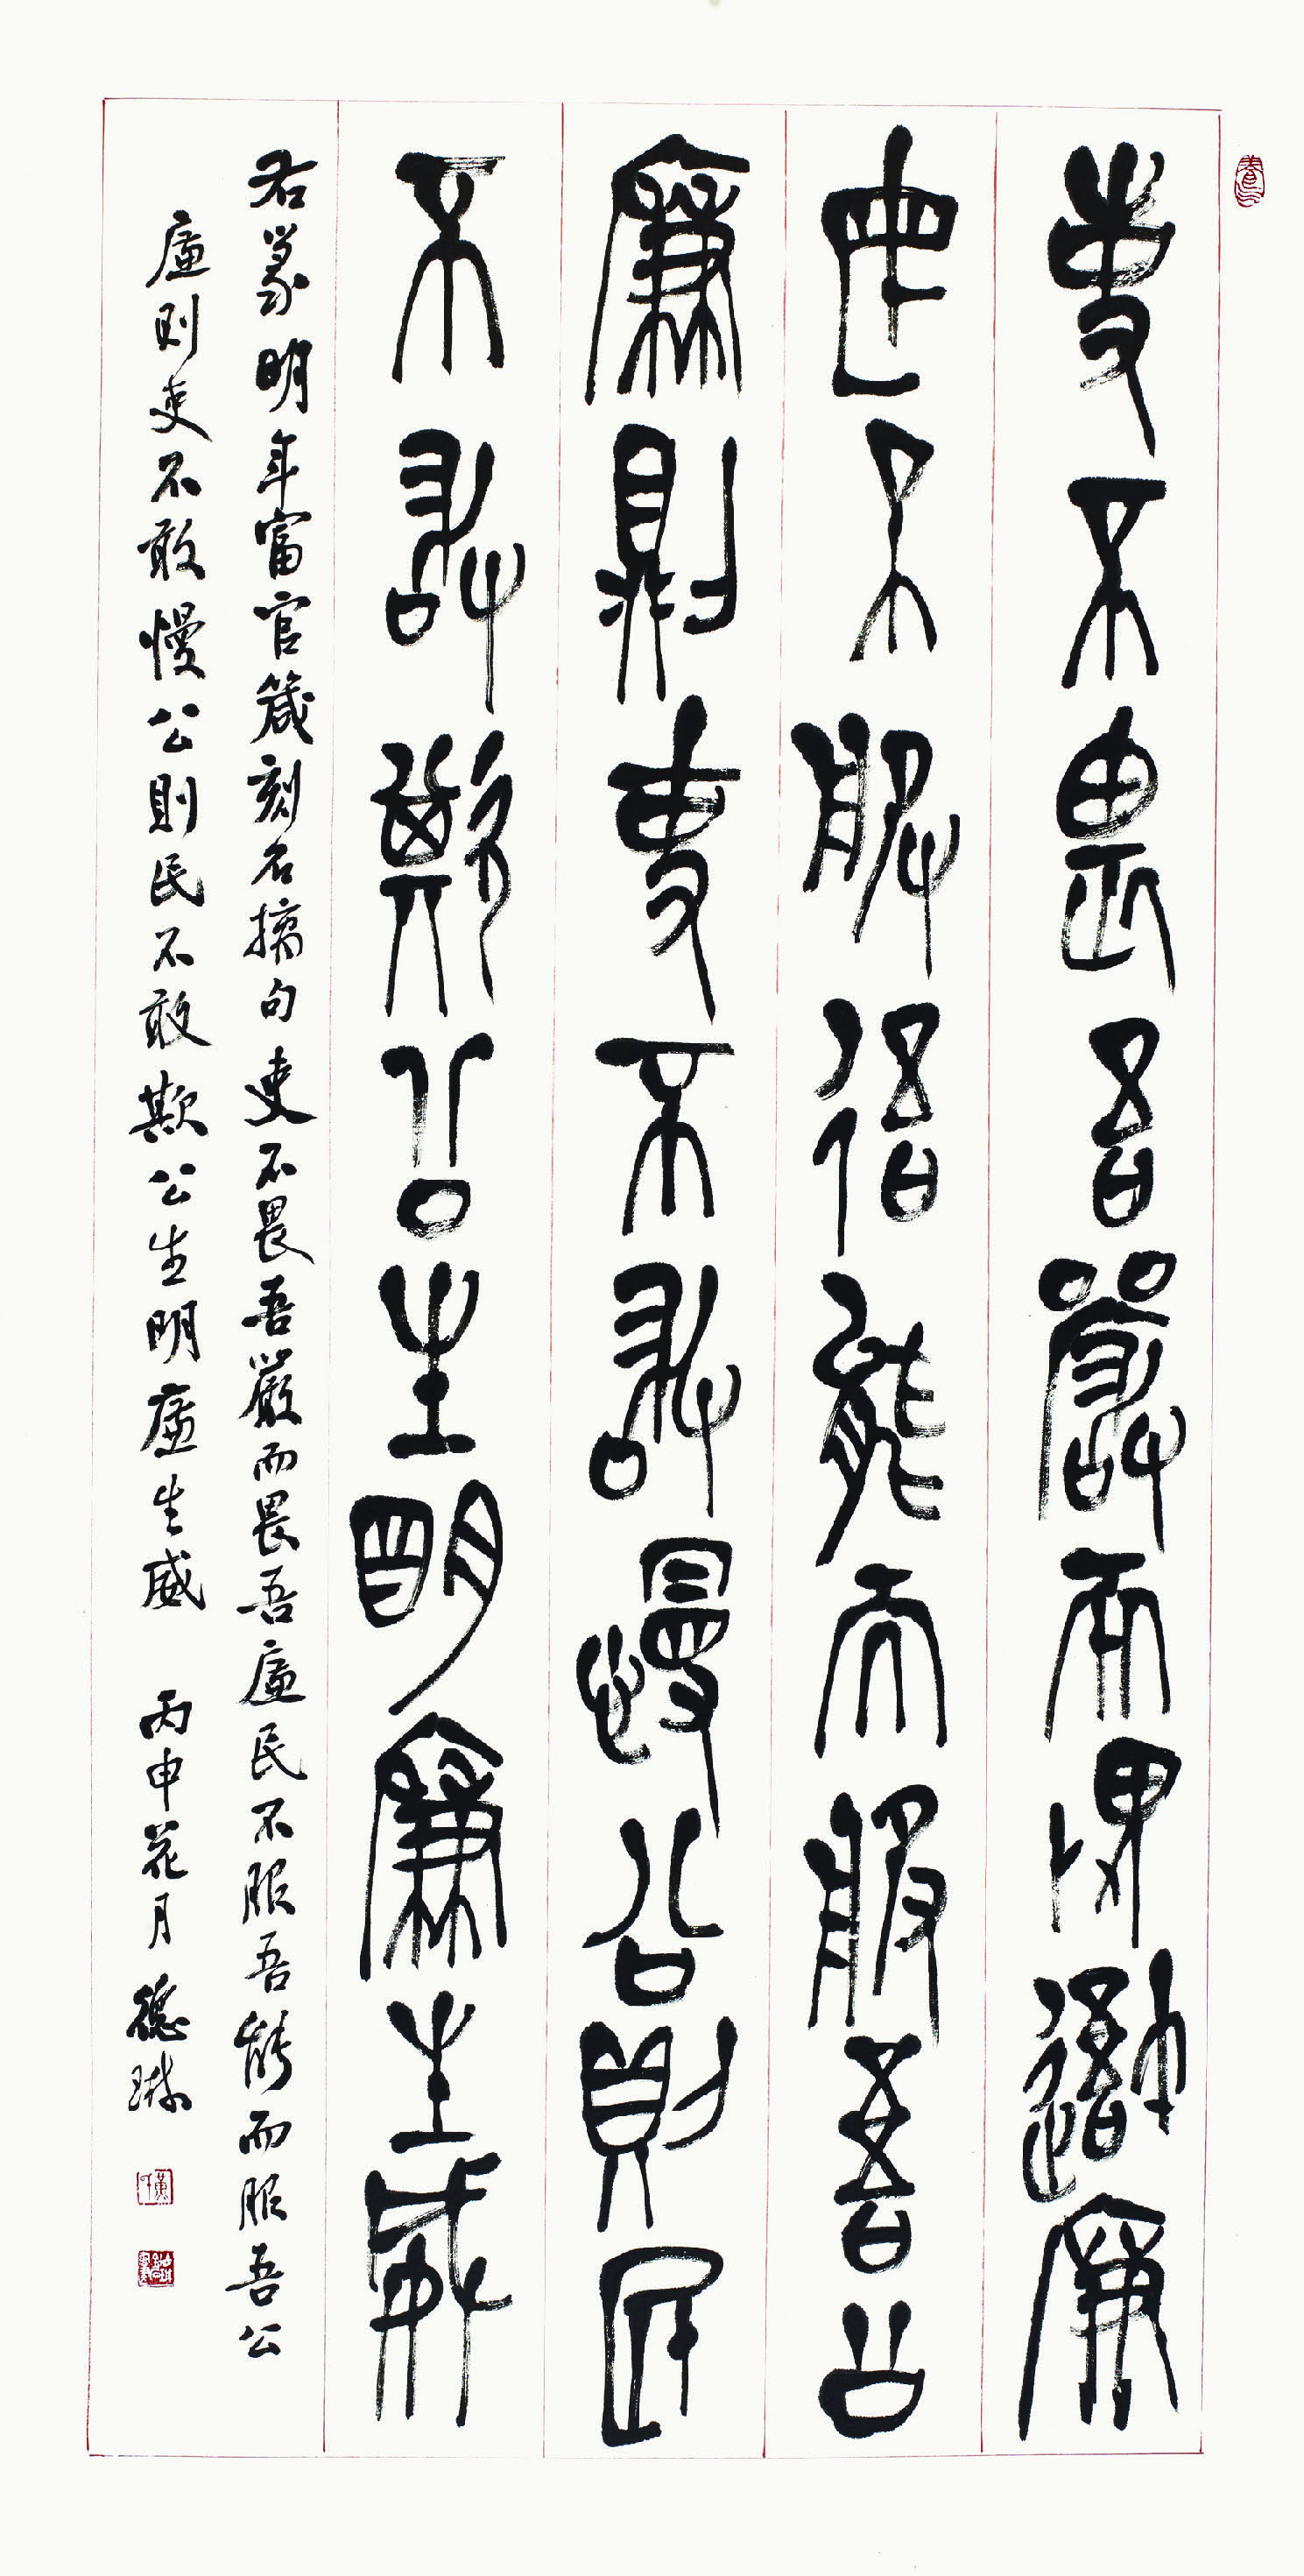 吏不畏吾嚴而畏吾廉
民不服吾能而服吾公
廉則吏不敢慢公則民
不敢欺公生明廉生威
右篆明年富官箴刻石摘句吏不畏吾嚴而畏吾廉民不服吾能而服吾公
廉则吏不敢慢公則民不敢欺公生明廉生威 丙申花月 德琳